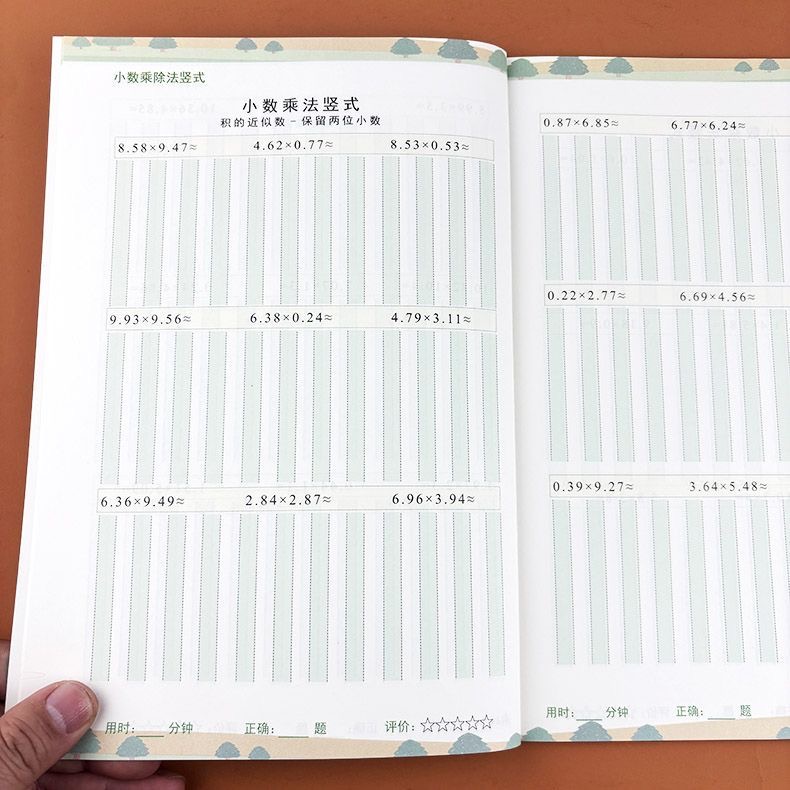 小数乘除法竖式
小数乘法竖式
积的近似数-保留两位小数
8.58×9.47≈ 4.62×0.77≈ 8.53×0.53≈
9.93×9.56≈ 6.38×0.24≈ 4.79×3.11≈
6.36×9.49≈ 2.84×2.87≈ 6.96×3.94≈
用时:____分钟 正确:____题 评价:☆☆☆☆☆
0.87×6.85≈ 6.77×6.24≈
0.22×2.77≈ 6.69×4.56≈
0.39×9.27≈ 3.64×5.48≈
用时:____分钟 正确:____题